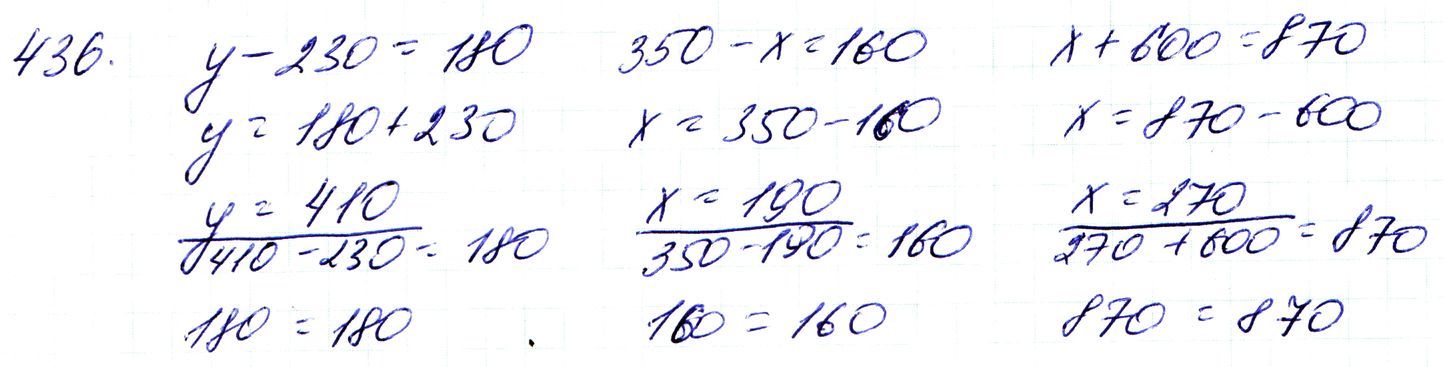 436. y - 230 = 180 350 - x = 160 x + 600 = 870
y = 180 + 230 x = 350 - 160 x = 870 - 600
y = 410 x = 190 x = 270
410 - 230 = 180 350 - 190 = 160 270 + 600 = 870
180 = 180 160 = 160 870 = 870